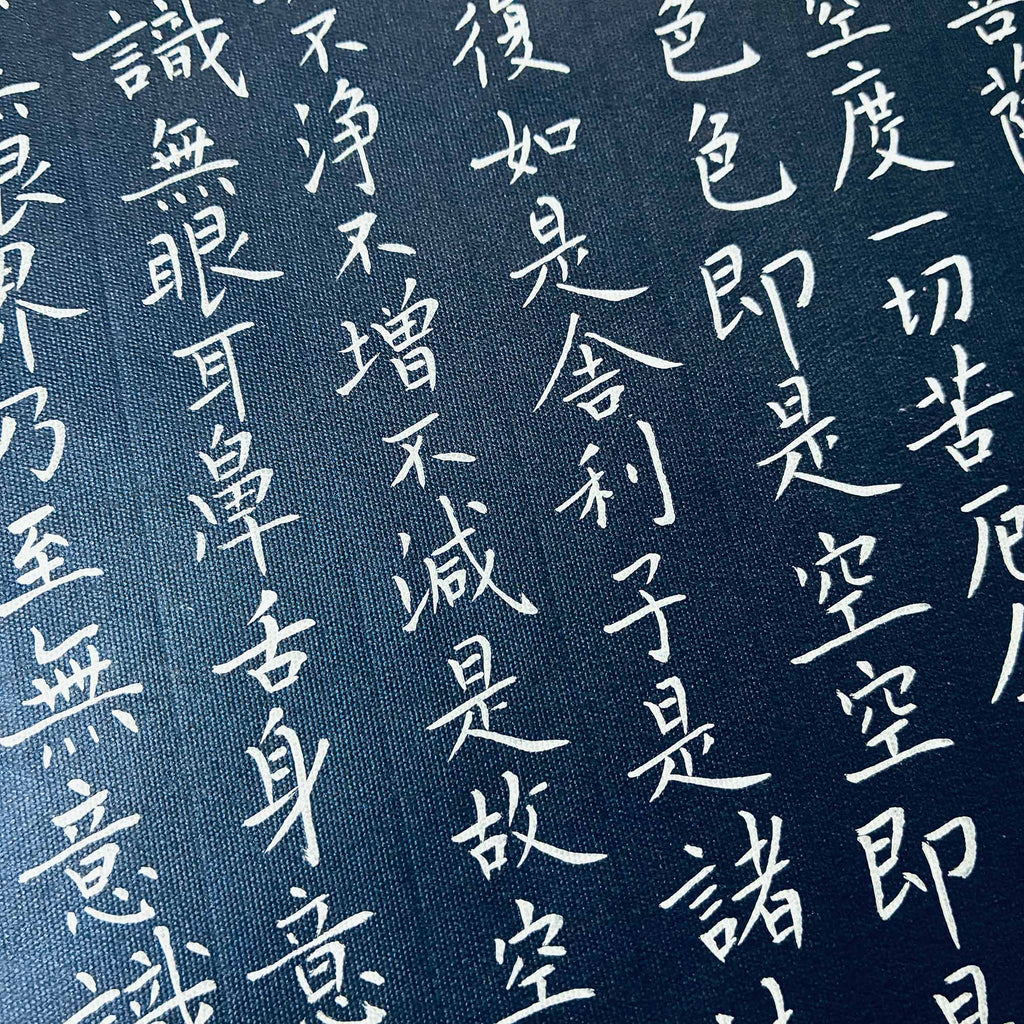 菩薩
空度一切苦厄
色色即是空空即是
復如是舎利子是諸法
不浄不増不減是故空
識無眼耳鼻舌身意
無眼界乃至無意識